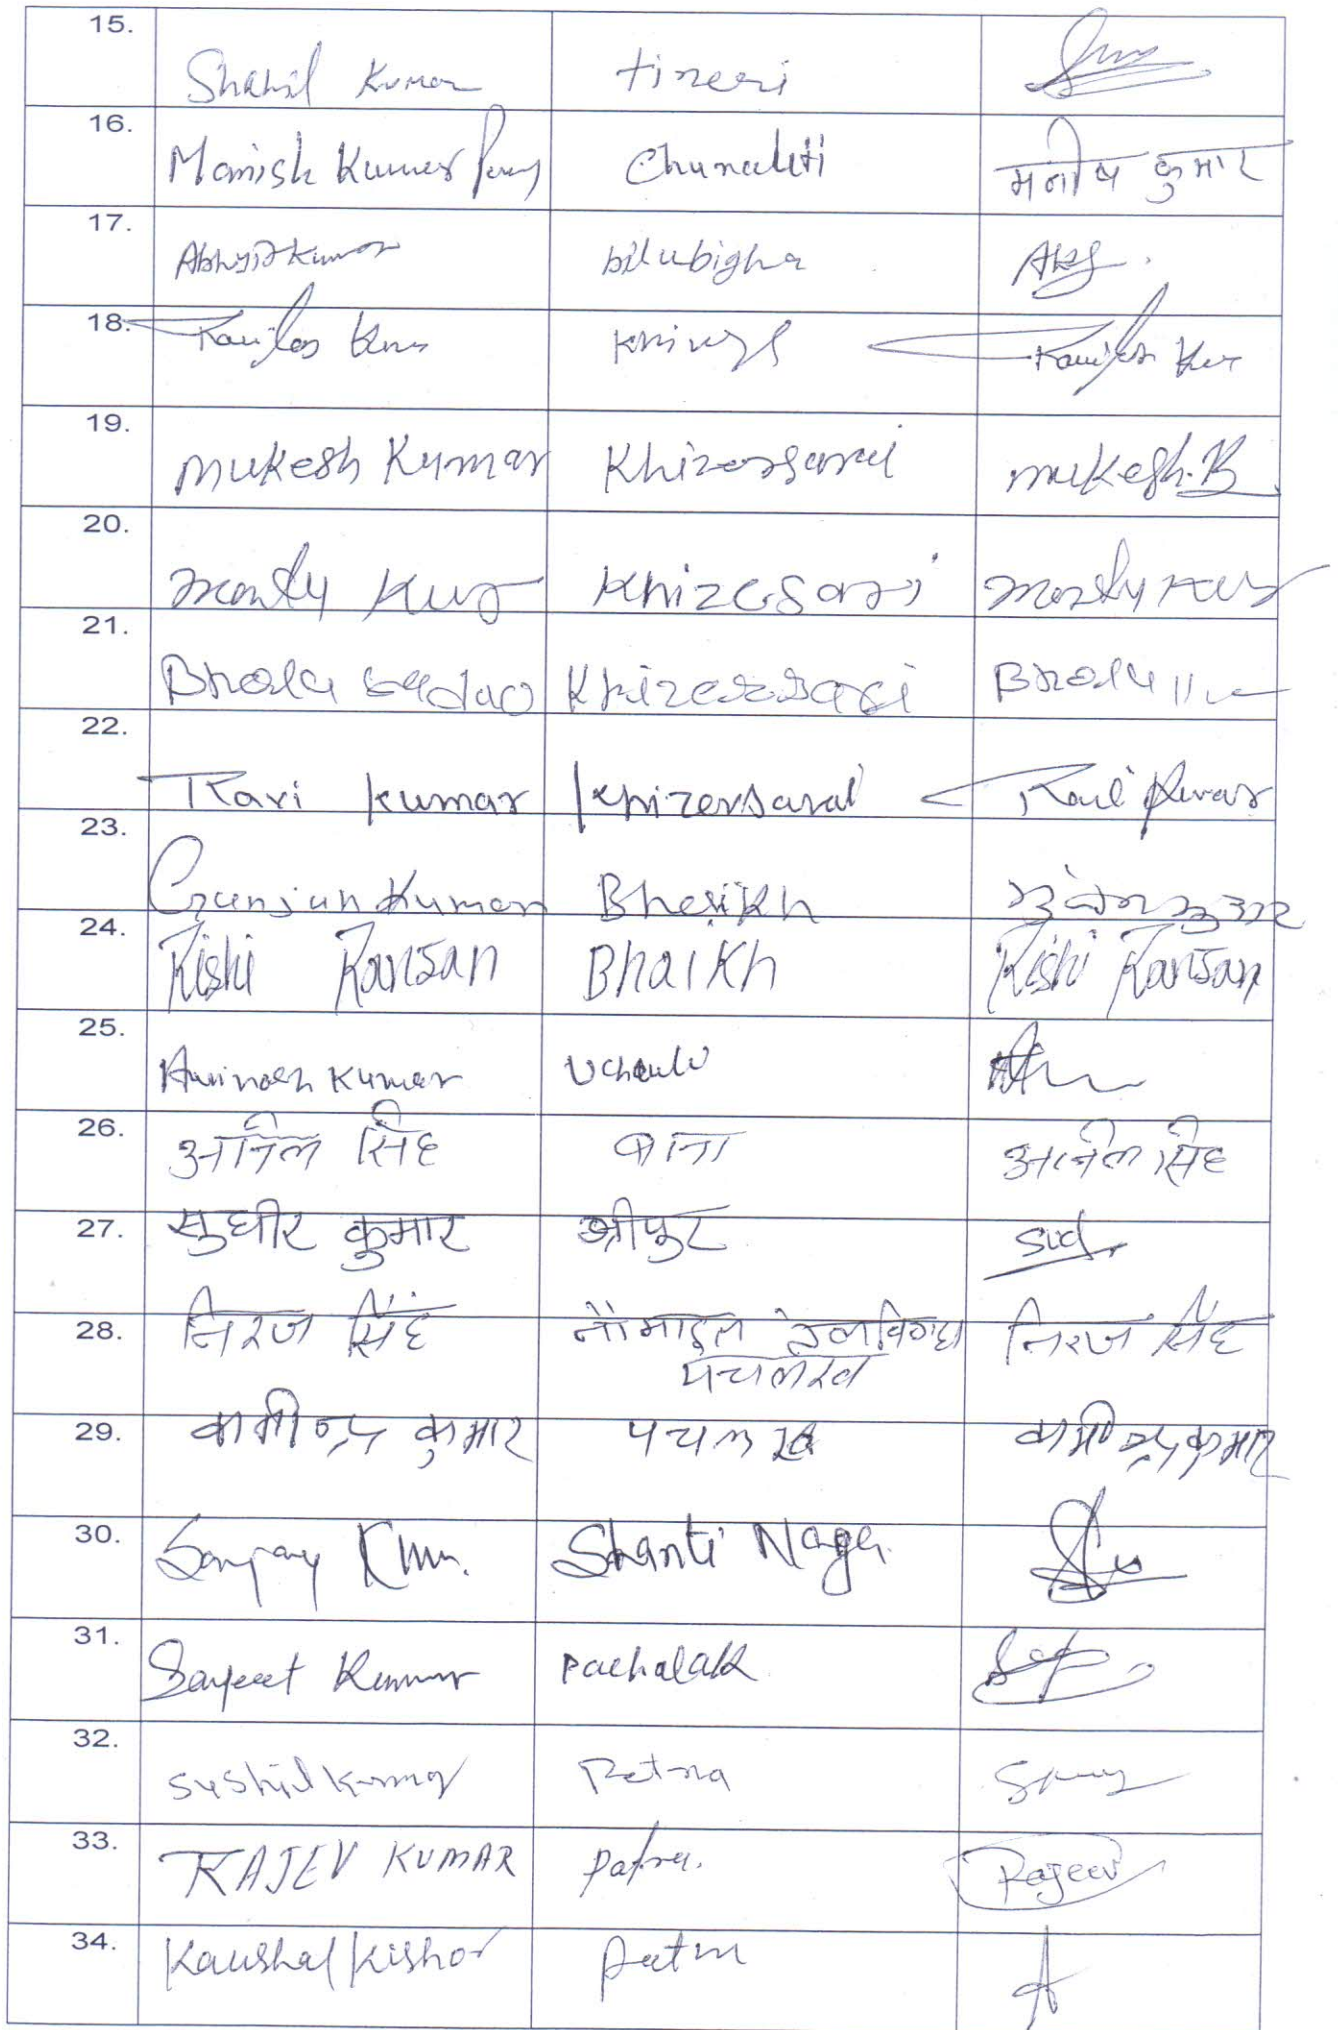 15.
Shahil Kumar tineri
16.
Manish Kumar Chunauti मनीष कुमार
17.
Abhyjit Kumar bilubigha
18.
Kumar
19.
Mukesh Kumar Khizersarai mukesh.
20.
Monty Kumar Khizersari Monty
21.
Bhola yadav Khizersarai Bhola
22.
Ravi kumar Khizersarai Ravi Kumar
23.
Gunjan Kumar Bheikh गुंजन कुमार
24.
Rishi Ranjan BhaIKh Rishi Ranjan
25.
Avinash Kumar Uchauli
26.
अनिल सिंह अनिल सिंह
27.
सुधीर कुमार श्रीपुर
28.
निरज सिंह निरज सिंह
पंचलख
29.
कुमार पचलख कुमार
30.
Sanjay Kumar Shanti Nagar
31.
Sanjeet Kumar Pachalak
32.
Sushil kumar Patna
33.
RAJEV KUMAR Patna. Rajeev
34.
Kaushal Kishor Patna